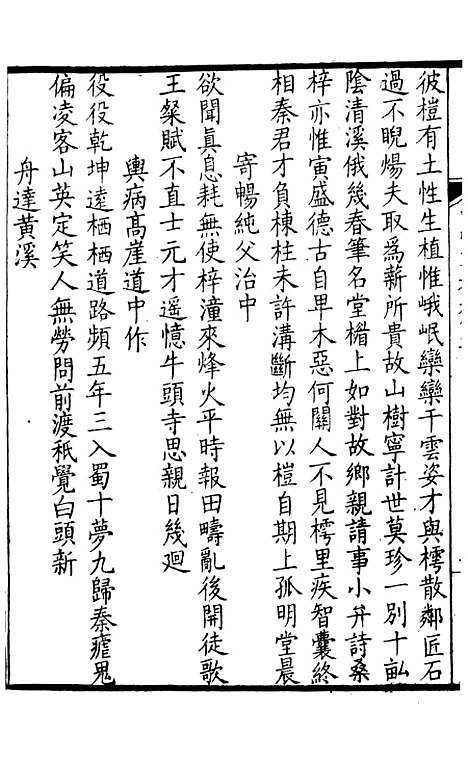 彼榿有土性生植惟峨岷欒欒干雲姿才與樗散鄰匠石
過不睨煬夫取為薪所貴故山樹寧計世莫珍一別十畝
陰清溪俄幾春筆名堂楣上如對故鄉親請事小弁詩桑
梓亦惟寅盛德古自卑木惡何關人不見樗里疾智囊終
相秦君才負棟柱未許溝斷均無以榿自期上孤明堂晨
寄暢純父治中
欲聞真息耗無使梓潼來烽火平時報田疇亂後開徒歌
王粲賦不直士元才遥憶牛頭寺思親日幾迴
輿病高崖道中作
役役乾坤遠栖栖道路頻五年三入蜀十夢九歸秦瘧鬼
偏凌客山英定笑人無勞問前渡秖覺白頭新
舟達黃溪